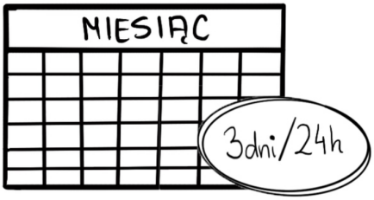 MIESIĄC
3dni/24h